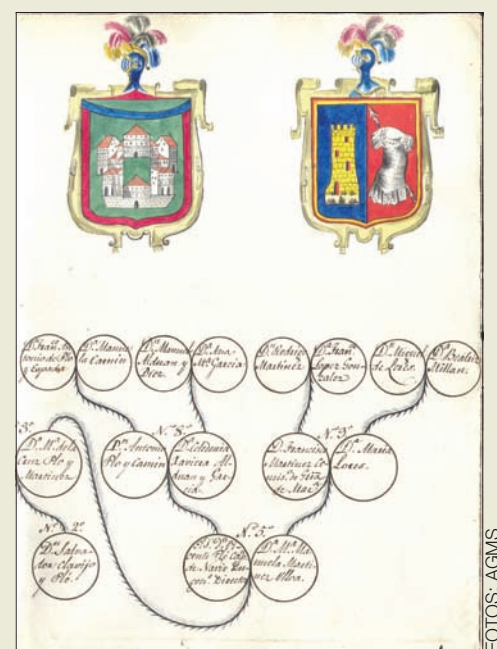 Dn. Franco. An
tonio de Plo
y España
Da. Manue
la Camin
Dn. Manuel
Alduan y
Diez.
Da. Ana
Ma. Garcia
Dn. Rodrigo
Martinez
Da. Franca.
Lopez Gon
zalez
Dn. Miguel
de Lores.
Da. Beatriz
Millan.
3º.
Da. Ma. de la
Cruz Plo y
Martinez
Dn. Antonio
Plo y Camin
Nº. 8º.
Da. Celedonia
Xaviera Al
duan y Gar
cia.
Dn. Francisco
Martinez
de Mara.
Nº. 9º.
Da. Maria
Lores.
Nº. 2º.
Dn. Salva
dor Clavijo
y Plo.
Nº. 5º.
cente Plo
de Navio
Director
Da. Ma. Ma
nuela Marti
nez Ulloa.
FOTOS: AGMS